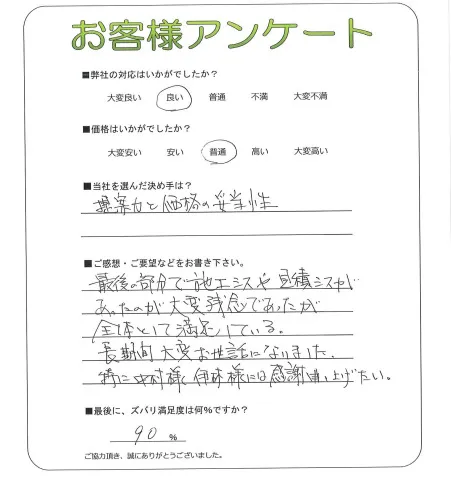 お客様アンケート
■弊社の対応はいかがでしたか？
大変良い 良い 普通 不満 大変不満
■価格はいかがでしたか？
大変安い 安い 普通 高い 大変高い
■当社を選んだ決め手は？
提案力と価格の妥当性
■ご感想・ご要望などをお書き下さい。
最後の部分で施工ミスや見積ミスが
あったのが大変残念であったが
全体として満足している。
長期間大変お世話になりました。
特に中村様、伊藤様には感謝申し上げたい。
■最後に、ズバリ満足度は何％ですか？
90 %
ご協力頂き、誠にありがとうございました。